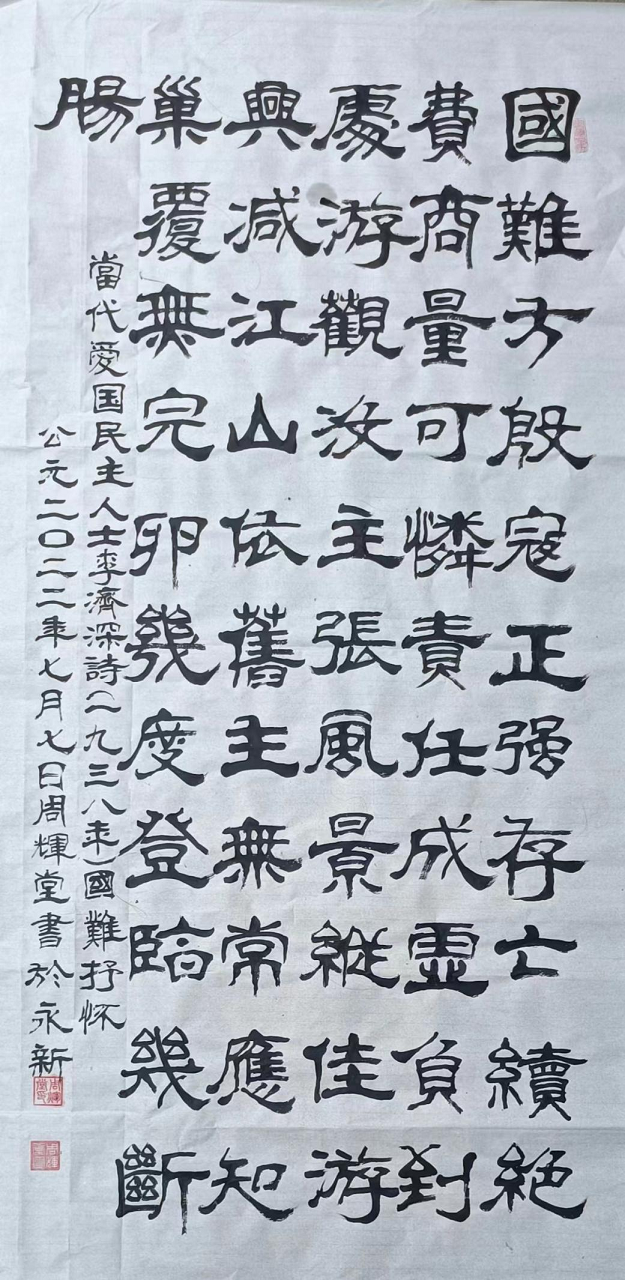 國難方殷寇正强存亡續絕
費商量可憐責任成虛負到
處游觀汝主張風景縱佳游
興减江山依舊主無常應知
巢覆無完卵幾度登臨幾斷
腸
當代愛国民主人士李濟深詩(一九三八年)國難抒怀
公元二〇二二年七月七日周輝堂書於永新